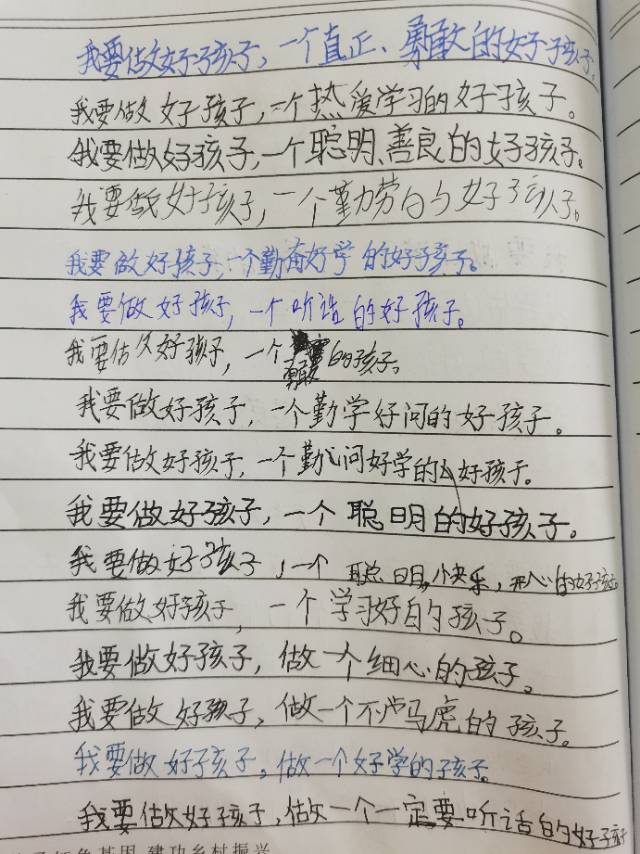 我要做好孩子，一个真正、勇敢的好孩子。
我要做好孩子，一个热爱学习的好孩子。
我要做好孩子，一个聪明、善良的好孩子。
我要做好孩子，一个勤劳的好孩子。
我要做好孩子，一个勤奋好学的好孩子。
我要做好孩子，一个听话的好孩子。
我要做好孩子，一个勇敢的孩子。
我要做好孩子，一个勤学好问的好孩子。
我要做好孩子，一个勤问好学的好孩子。
我要做好孩子，一个聪明的好孩子。
我要做好孩子，一个聪明，快乐，开心的好孩子。
我要做好孩子，一个学习好的孩子。
我要做好孩子，做一个细心的孩子。
我要做好孩子，做一个不马虎的孩子。
我要做好孩子，做一个好学的孩子。
我要做好孩子，做一个一定要听话的好孩子
色基因 建功乡村振兴